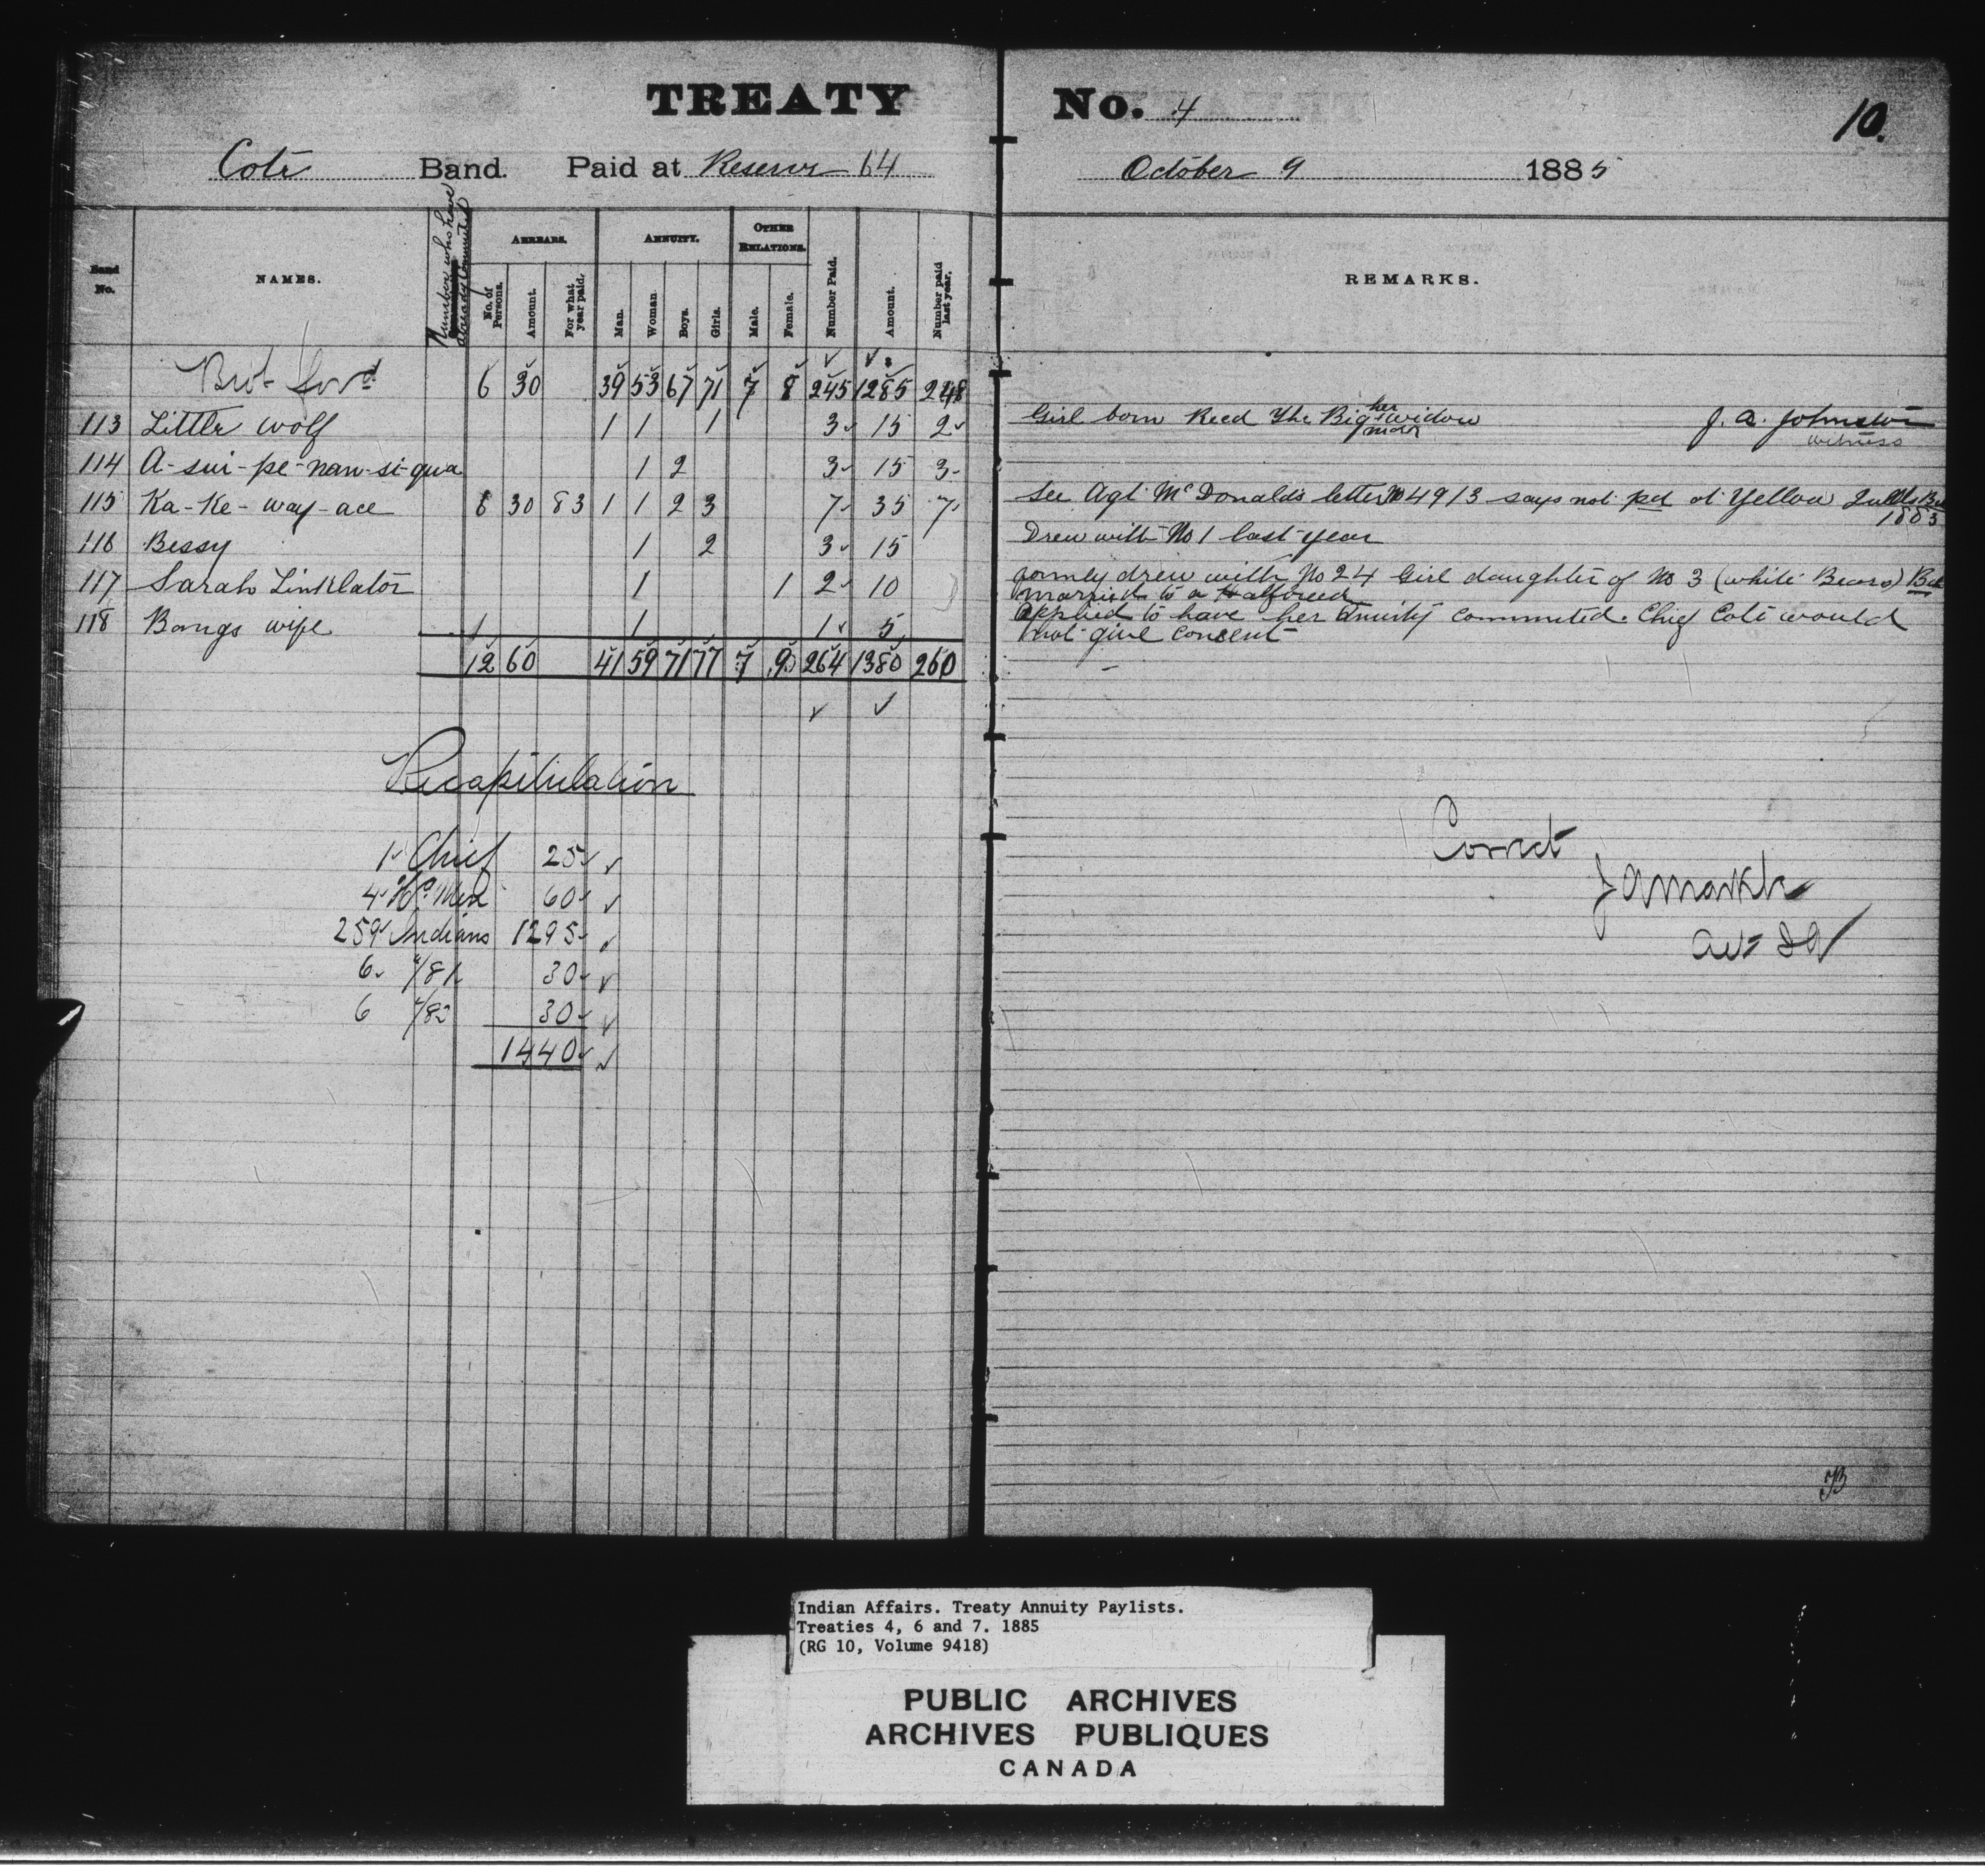 TREATY No. 4
10.
Coté Band. Paid at Reserve 64 October 9 1885
Band No.
NAMES.
Number who have already Commuted
ARREARS.
No. of Persons.
Amount.
For what year paid.
ANNUITY.
Man.
Woman.
Boys.
Girls.
OTHER RELATIONS.
Male.
Female.
Number Paid.
Amount.
Number paid last year.
REMARKS.
Brot ford 6 30 39 53 67 71 7 8 245 1285 248
113 Little wolf 1 1 1 3 15 2 Girl born Reed The Big man her widow J. A. Johnston
witness
114 A-sui-pe-nan-si-qua 1 2 3 15 3
115 Ka-Ke-way-ace 6 30 83 1 1 2 3 7 35 7 See Agt McDonald's letter No 4913 says not pd at Yellow Quills
1883
116 Bessy 1 2 3 15 Drew with No 1 last year
117 Sarah Linklator 1 1 2 10 formly drew with No 24 Girl daughter of No 3 (white Bears)
married to a Halfbreed
118 Bangs wife 1 1 1 5 applied to have her Annuity commuted. Chief Coté would
not give consent
12 60 41 59 71 77 7 9 264 1380 260
Recapitulation
1 Chief 25
4 Hd Men 60
259 Indians 1295
6 "/81 30
6 "/83 30
1440
Correct
JB
Indian Affairs. Treaty Annuity Paylists.
Treaties 4, 6 and 7. 1885
(RG 10, Volume 9418)
PUBLIC ARCHIVES
ARCHIVES PUBLIQUES
CANADA